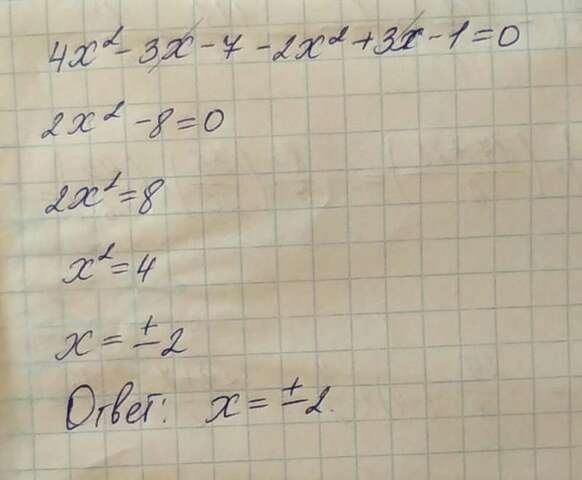 4x² - 3x - 7 - 2x² + 3x - 1 = 0
2x² - 8 = 0
2x² = 8
x² = 4
x = ± 2
Ответ: x = ± 2.